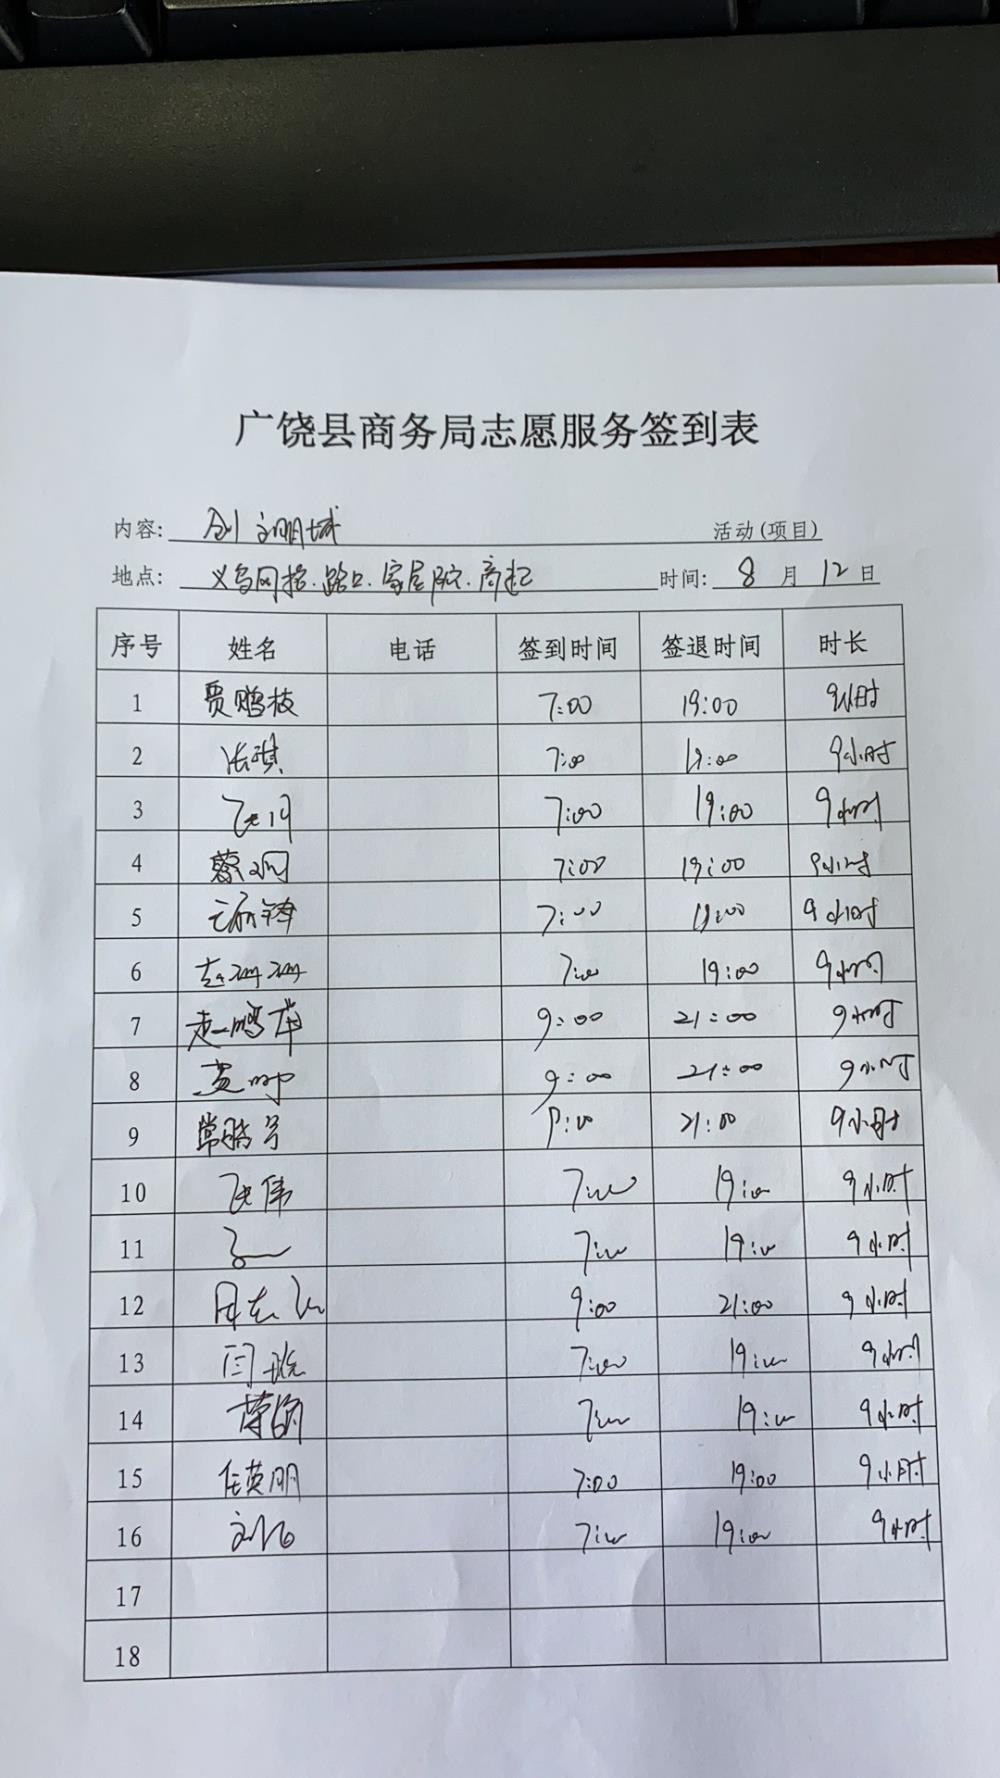 广饶县商务局志愿服务签到表
内容: 创文明城 活动(项目)
地点: 义乌网格.路口.家居院.商超 时间: 8月12日
序号 姓名 电话 签到时间 签退时间 时长
1 贾鹏枝 7:00 19:00 9小时
2 张琪 7:00 19:00 9小时
3 7:00 19:00 9小时
4 7:00 19:00 9小时
5 7:00 19:00 9小时
6 赵珊珊 7:00 19:00 9小时
7 9:00 21:00 9小时
8 9:00 21:00 9小时
9 9:00 21:00 9小时
10 张伟 7:00 19:00 9小时
11 7:00 19:00 9小时
12 9:00 21:00 9小时
13 7:00 19:00 9小时
14 7:00 19:00 9小时
15 任英明 7:00 19:00 9小时
16 7:00 19:00 9小时
17
18